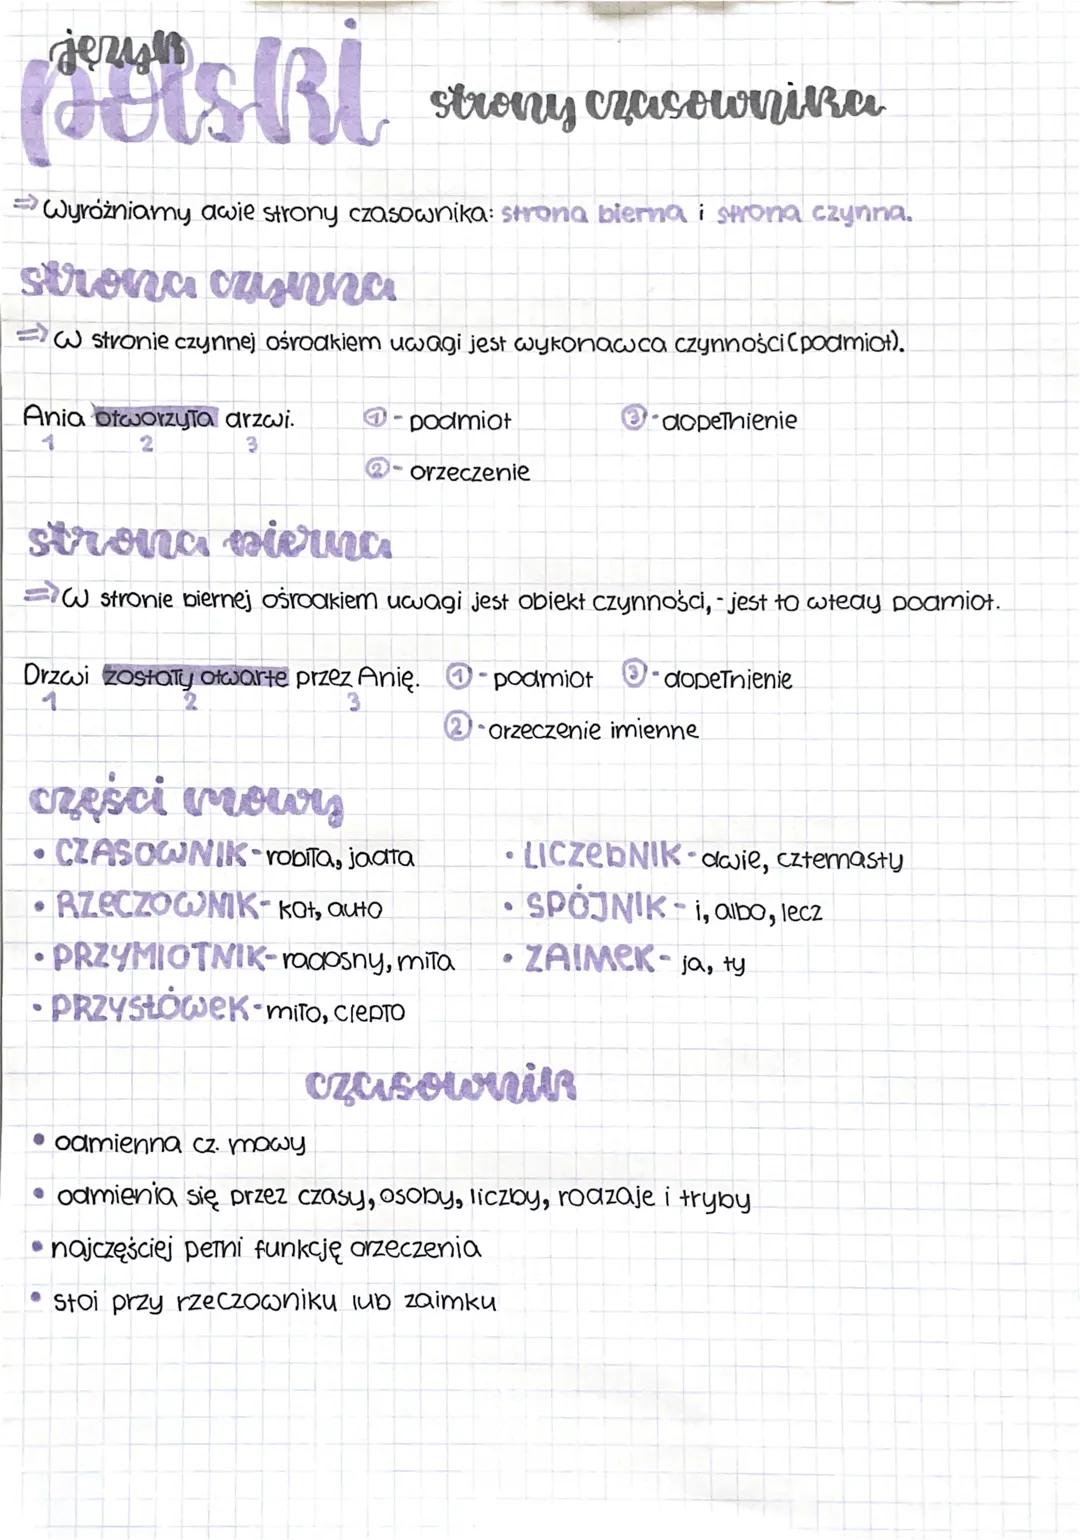 język
polski strony czasownika
⇒ Wyróżniamy dwie strony czasownika: strona bierna i strona czynna.
strona czynna
⇒ W stronie czynnej ośrodkiem uwagi jest wykonawca czynności (podmiot).
Ania otworzyła drzwi. ① - podmiot ③ - dopełnienie
1 2 3
② - orzeczenie
strona bierna
⇒ W stronie biernej ośrodkiem uwagi jest obiekt czynności, - jest to wtedy podmiot.
Drzwi zostały otwarte przez Anię. ① - podmiot ③ - dopełnienie
1 2 3
② - orzeczenie imienne
części mowy
• CZASOWNIK - robiła, jadła • LICZEBNIK - dwie, czternasty
• RZECZOWNIK - kot, auto • SPÓJNIK - i, albo, lecz
• PRZYMIOTNIK - radosny, miła • ZAIMEK - ja, ty
• PRZYSŁÓWEK - miło, ciepło
czasownik
• odmienna cz. mowy
• odmienia się przez czasy, osoby, liczby, rodzaje i tryby
• najczęściej pełni funkcję orzeczenia
• stoi przy rzeczowniku lub zaimku